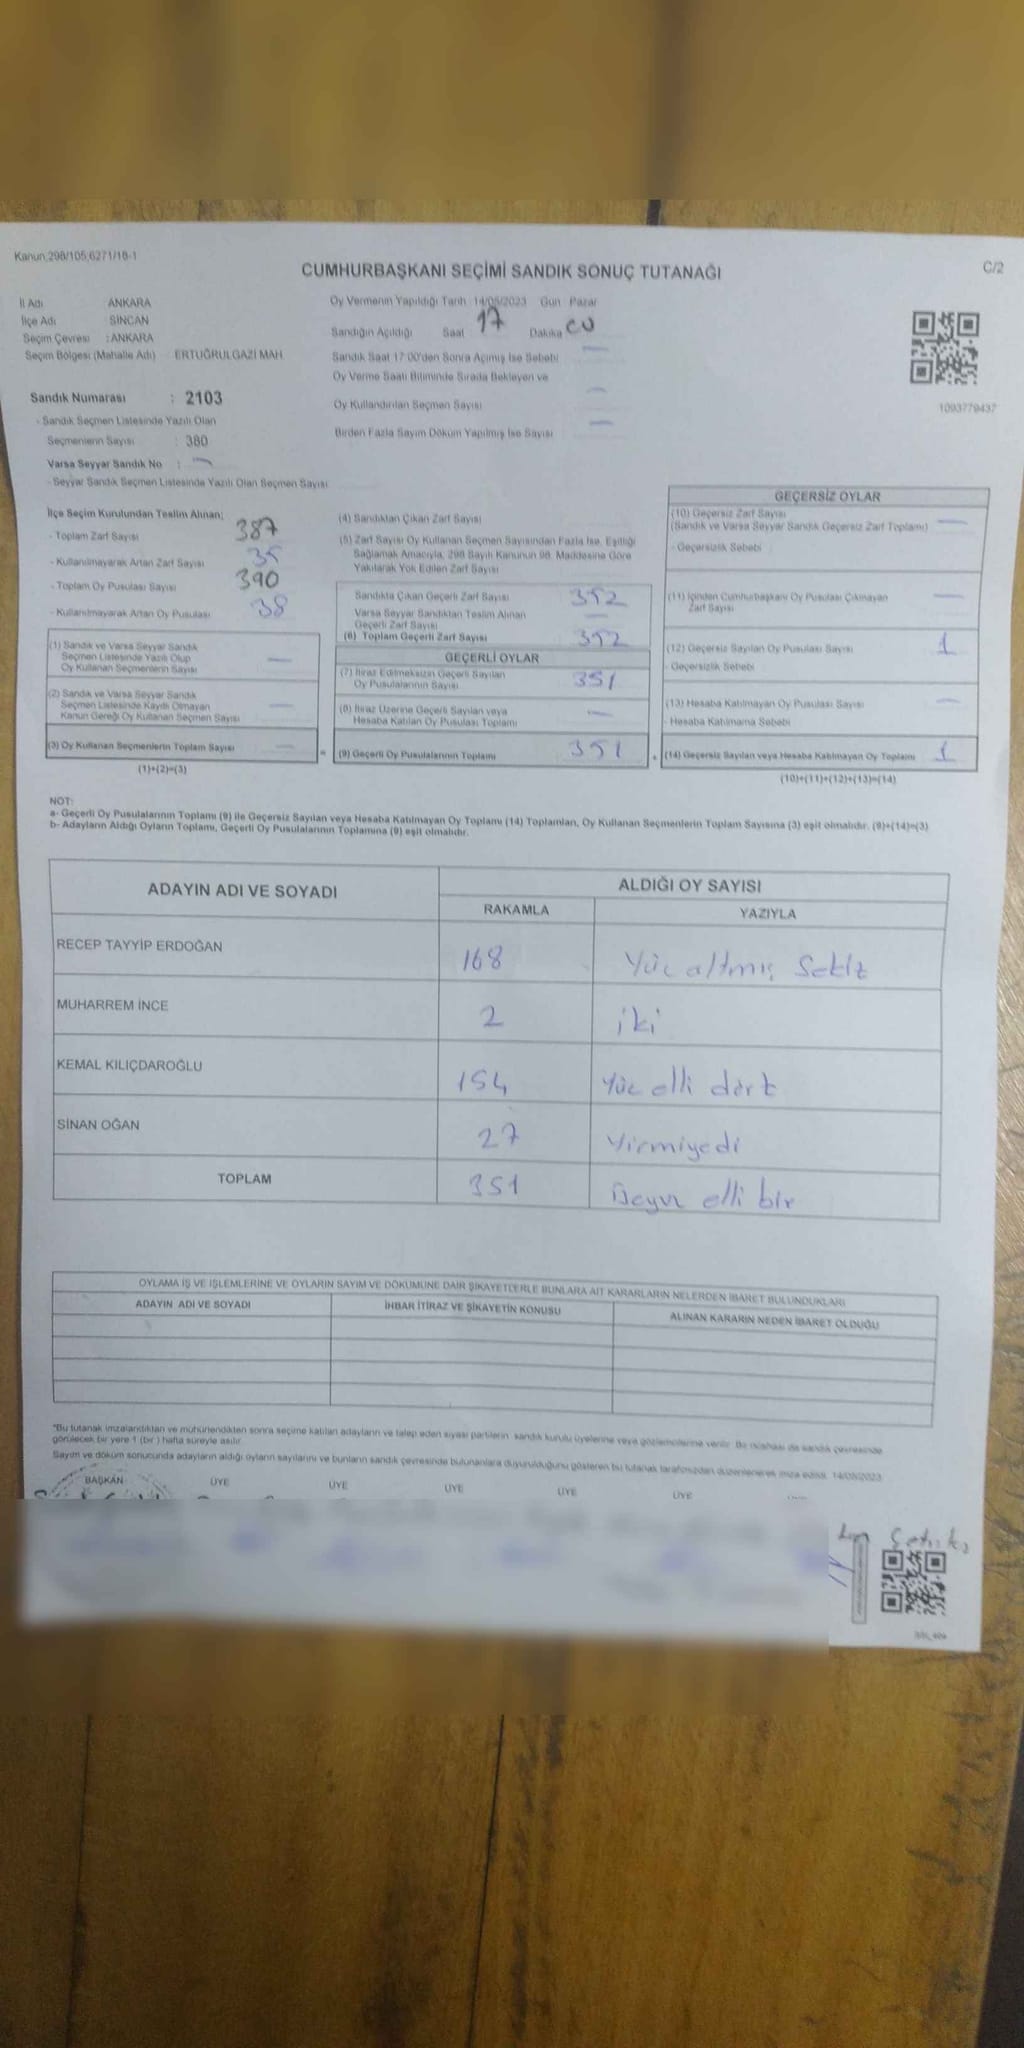 Kanun:298/105;6271/18-1
CUMHURBAŞKANI SEÇİMİ SANDIK SONUÇ TUTANAĞI
C/2
İl Adı ANKARA
İlçe Adı SİNCAN
Seçim Çevresi : ANKARA
Seçim Bölgesi (Mahalle Adı) ERTUĞRULGAZİ MAH
Oy Vermenin Yapıldığı Tarih 14/05/2023 Gün Pazar
Sandığın Açıldığı Saat 17 Dakika
Sandık Saat 17:00'den Sonra Açımış İse Sebebi
Oy Verme Saati Bitiminde Sırada Bekleyen ve
Oy Kullandırılan Seçmen Sayısı
Birden Fazla Sayım Döküm Yapılmış İse Sayısı
1093779437
Sandık Numarası : 2103
- Sandık Seçmen Listesinde Yazılı Olan
Seçmenlerin Sayısı : 380
Varsa Seyyar Sandık No : —
- Seyyar Sandık Seçmen Listesinde Yazılı Olan Seçmen Sayısı
İlçe Seçim Kurulundan Teslim Alınan;
- Toplam Zarf Sayısı 387
- Kullanılmayarak Artan Zarf Sayısı 35
- Toplam Oy Pusulası Sayısı 390
- Kullanılmayarak Artan Oy Pusulası 38
(1) Sandık ve Varsa Seyyar Sandık
Seçmen Listesinde Yazılı Olup
Oy Kullanan Seçmenlerin Sayısı —
(2) Sandık ve Varsa Seyyar Sandık
Seçmen Listesinde Kayıtlı Olmayan
Kanun Gereği Oy Kullanan Seçmen Sayısı —
(3) Oy Kullanan Seçmenlerin Toplam Sayısı —
(1)+(2)=(3)
(4) Sandıktan Çıkan Zarf Sayısı
(5) Zarf Sayısı Oy Kullanan Seçmen Sayısından Fazla İse, Eşitliği
Sağlamak Amacıyla, 298 Sayılı Kanunun 98. Maddesine Göre
Yakılarak Yok Edilen Zarf Sayısı
Sandıkta Çıkan Geçerli Zarf Sayısı 352
Varsa Seyyar Sandıktan Teslim Alınan
Geçerli Zarf Sayısı —
(6) Toplam Geçerli Zarf Sayısı 352
GEÇERLİ OYLAR
(7) İtiraz Edilmeksizin Geçerli Sayılan
Oy Pusulalarının Sayısı 351
(8) İtiraz Üzerine Geçerli Sayılan veya
Hesaba Katılan Oy Pusulası Toplamı —
= (9) Geçerli Oy Pusulalarının Toplamı 351
GEÇERSİZ OYLAR
(10) Geçersiz Zarf Sayısı
(Sandık ve Varsa Seyyar Sandık Geçersiz Zarf Toplamı) —
- Geçersizlik Sebebi
(11) İçinden Cumhurbaşkanı Oy Pusulası Çıkmayan
Zarf Sayısı —
(12) Geçersiz Sayılan Oy Pusulası Sayısı 1
- Geçersizlik Sebebi
(13) Hesaba Katılmayan Oy Pusulası Sayısı —
- Hesaba Katılmama Sebebi
+ (14) Geçersiz Sayılan veya Hesaba Katılmayan Oy Toplamı 1
(10)+(11)+(12)+(13)=(14)
NOT:
a- Geçerli Oy Pusulalarının Toplamı (9) ile Geçersiz Sayılan veya Hesaba Katılmayan Oy Toplamı (14) Toplamları, Oy Kullanan Seçmenlerin Toplam Sayısına (3) eşit olmalıdır. (9)+(14)=(3)
b- Adayların Aldığı Oyların Toplamı, Geçerli Oy Pusulalarının Toplamına (9) eşit olmalıdır.
ADAYIN ADI VE SOYADI
ALDIĞI OY SAYISI
RAKAMLA YAZIYLA
RECEP TAYYİP ERDOĞAN 168 Yüz altmış Sekiz
MUHARREM İNCE 2 iki
KEMAL KILIÇDAROĞLU 154 Yüz elli dört
SİNAN OĞAN 27 Yirmiyedi
TOPLAM 351 elli bir
OYLAMA İŞ VE İŞLEMLERİNE VE OYLARIN SAYIM VE DÖKÜMÜNE DAİR ŞİKAYETLERLE BUNLARA AİT KARARLARIN NELERDEN İBARET BULUNDUKLARI
ADAYIN ADI VE SOYADI İHBAR İTİRAZ VE ŞİKAYETİN KONUSU ALINAN KARARIN NEDEN İBARET OLDUĞU
*Bu tutanak imzalandıktan ve mühürlendikten sonra seçime katılan adayların ve talep eden siyasi partilerin sandık kurulu üyelerine veya gözlemcilerine verilir. Bir nüshası da sandık çevresinde
görülecek bir yere 1 (bir) hafta süreyle asılır.
Sayım ve döküm sonucunda adayların aldığı oyların sayılarını ve bunların sandık çevresinde bulunanlara duyurulduğunu gösteren bu tutanak tarafımızdan düzenlenerek imza edildi. 14/05/2023
BAŞKAN ÜYE ÜYE ÜYE ÜYE ÜYE